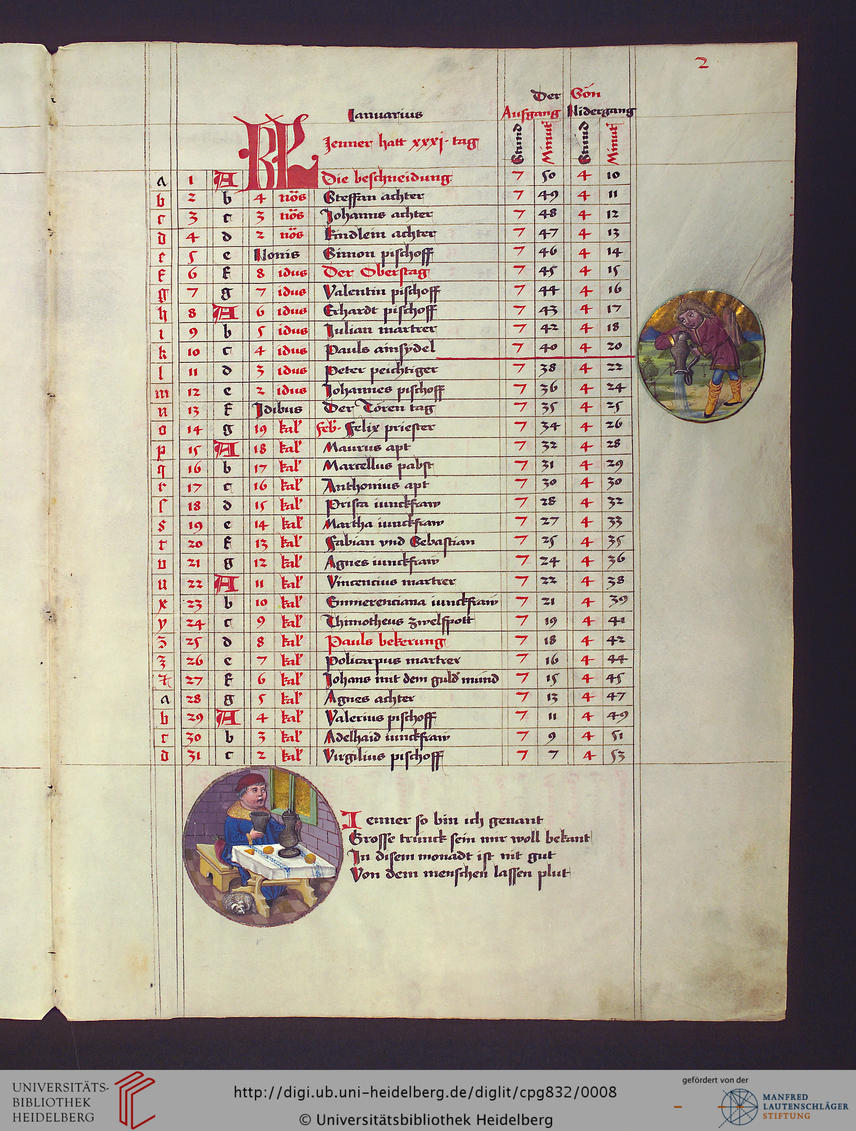 2
Der Son
Ianuarius
Aufgang Nidergang
KL Jenner hatt xxxj tag
Stund Minut Stund Minut
a 1 A Die beschneidung 7 50 4 10
b 2 b 4 nōs Steffan achter 7 49 4 11
c 3 c 3 nōs Johanns achter 7 48 4 12
d 4 d 2 nōs kindlein achter 7 47 4 13
e 5 e Nonis Simon pischoff 7 46 4 14
f 6 f 8 idus Der Oberstag 7 45 4 15
g 7 g 7 idus Valentin pischoff 7 44 4 16
h 8 A 6 idus Erhardt pischoff 7 43 4 17
i 9 b 5 idus Julian martrer 7 42 4 18
k 10 c 4 idus Pauls ainsydel 7 40 4 20
l 11 d 3 idus Peter peichtiger 7 38 4 22
m 12 e 2 idus Johannes pischoff 7 36 4 24
n 13 f Idibus Der Toren tag 7 35 4 25
o 14 g 19 kal' feb. Felix priester 7 34 4 26
p 15 A 18 kal' Maurus apt 7 32 4 28
q 16 b 17 kal' Marcellus pabst 7 31 4 29
r 17 c 16 kal' Anthonius apt 7 30 4 30
ſ 18 d 15 kal' Prisca iunckfraw 7 28 4 32
s 19 e 14 kal' Martha iunckfraw 7 27 4 33
t 20 f 13 kal' Fabian vnd Sebastian 7 25 4 35
v 21 g 12 kal' Agnes iunckfraw 7 24 4 36
u 22 A 11 kal' Vincencius martrer 7 22 4 38
x 23 b 10 kal' Emmerenciana iunckfraw 7 21 4 39
y 24 c 9 kal' Thimotheus zwelfpott 7 19 4 41
z 25 d 8 kal' Pauls bekerung 7 18 4 42
3 26 e 7 kal' Policarpus martrer 7 16 4 44
27 f 6 kal' Johans mit dem guld mund 7 15 4 45
a 28 g 5 kal' Agnes achter 7 13 4 47
b 29 A 4 kal' Valerius pischoff 7 11 4 49
c 30 b 3 kal' Adelhaid iunckfraw 7 9 4 51
d 31 c 2 kal' Virgilius pischoff 7 7 4 53
Jenner so bin ich genant
Grosse trunck sein mir woll bekant
In disem monadt ist nit gut
Von dem menschen lassen plut
UNIVERSITÄTS-
BIBLIOTHEK
HEIDELBERG
http://digi.ub.uni-heidelberg.de/diglit/cpg832/0008
© Universitätsbibliothek Heidelberg
gefördert von der
MANFRED
LAUTENSCHLÄGER
STIFTUNG